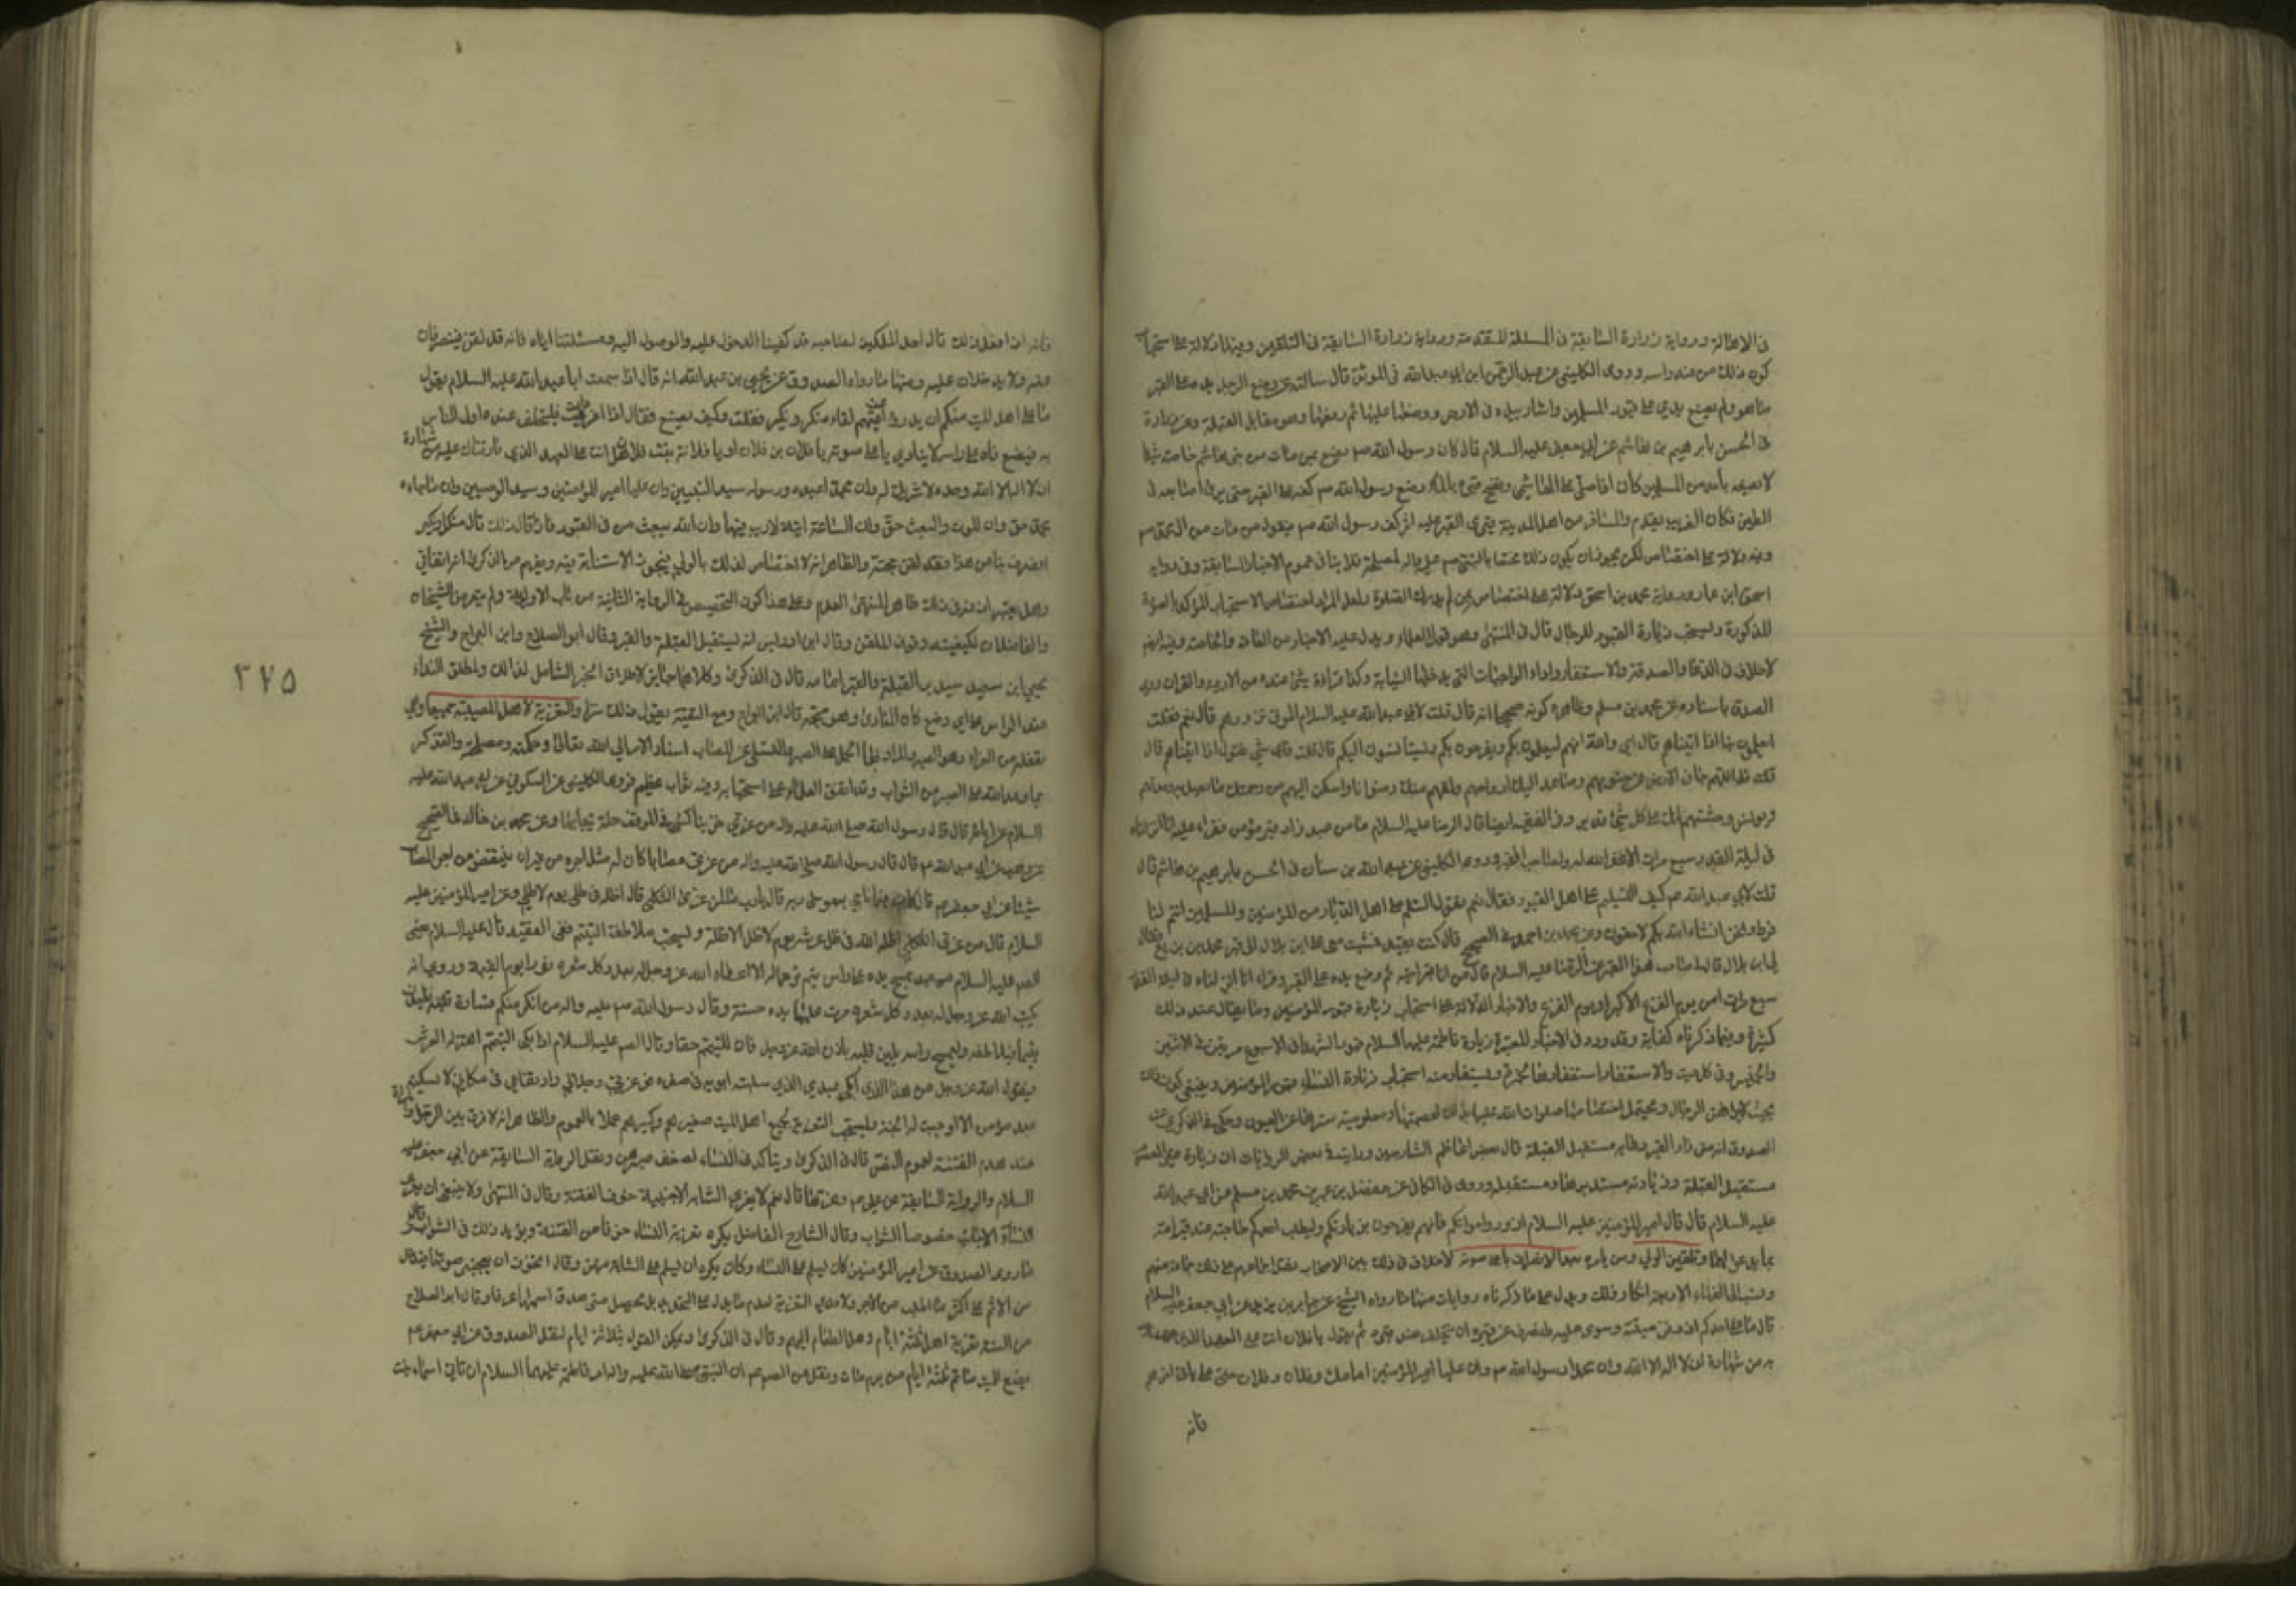 في الاطالة ورواية زرارة السابقة في المسئلة المتقدمة ورواية زرارة السابقة في التلقين وفيها دلالة على استحباب
كون ذلك من عند راسه وروى الكليني عن عبد الرحمن ابن ابي عبد الله في الموثق قال سالته عن وضع الرجل يده على القبر
ما هو ولم يصنع بدي على قبور المسلمين واشار بيده الى الارض ووضعها عليها ثم رفعها وهو مقابل القبلة وعن زرارة
في الحسن بابرهيم بن هاشم عن ابي جعفر عليه السلام قال كان رسول الله ص يصنع بمن مات من بني هاشم خاصة شيئا
لا يصنعه باحد من المسلمين كان اذا صلى على الهاشمي ونضح قبره بالماء وضع رسول الله ص كفه على القبر حتى يرى اصابعه في
الطين فكان الغريب يقدم والمسافر من اهل المدينة فيرى القبر عليه اثر كف رسول الله ص فيقول من مات من ال محمد ص
وفيه دلالة على اختصاص لكن يجوز ان يكون ذلك مختصا بالنبي ص لمصلحة فلا ينافي عموم الاخبار السابقة وفي رواية
اسحق ابن عمار ورواية محمد بن اسحق دلالة على اختصاص بمن لم يدرك الصلوة ولعل المراد اختصاص الاستحباب المؤكد بالصورة
المذكورة ويستحب زيارة القبور للرجال قال في المنتهى وهو قول العلماء ويدل عليه الاخبار من العامة والخاصة وفيه ايضا
لا خلاف في الدعا والصدقة والاستغفار واداء الواجبات التي يدخلها النيابة وكذا قراءة شيء عنده من الادعية والقران وروى
الصدوق باسناده عن محمد بن مسلم وظاهره كونه صحيحا انه قال قلت لابي عبد الله عليه السلام الموتى نزورهم قال نعم فقلت
ايعلمون بنا اذا اتيناهم قال اي والله انهم ليعلمون بكم ويفرحون بكم ويستانسون اليكم قال قلت فاي شيء نقول اذا اتيناهم قال
قل اللهم جاف الارض عن جنوبهم وصاعد اليك ارواحهم ولقهم منك رضوانا واسكن اليهم من رحمتك ما تصل به وحدتهم
وتونس وحشتهم انك على كل شيء قدير وفي الفقيه ايضا قال الرضا عليه السلام ما من عبد زار قبر مؤمن فقراء عليه انا انزلناه
في ليلة القدر سبع مرات الا غفر الله له ولصاحب القبر وروى الكليني عن عبد الله بن سنان في الحسن بابرهيم بن هاشم قال
قلت لابي عبد الله ع كيف التسليم على اهل القبور فقال نعم يقول السلم على اهل الديار من المؤمنين والمسلمين انتم لنا
فرط ونحن انشاء الله بكم لاحقون وعن محمد بن احمد في الصحيح قال كنت بفيد فمشيت مع علي ابن بلال الى قبر محمد بن بزيع فقال
لي ابن بلال قال لي صاحب هذا القبر عن الرضا عليه السلام قال من اتا قبر اخيه ثم وضع يده على القبر وقراء انا انزلناه في ليلة القدر
سبع مرات امن يوم الفزع الاكبر او يوم الفزع والاخبار الدالة على استحباب زيارة قبور المؤمنين وما يقال عند ذلك
كثيرة وفيما ذكرناه كفاية وقد ورد في الاخبار المعتبرة زيارة فاطمة عليها السلام قبور الشهداء في الاسبوع مرتين في الاثنين
والخميس وفي كل سبت والاستغفار استغفارها لحمزة ويستفاد منه استحباب زيارة النساء قبور المؤمنين وينبغي كون ذلك
بحيث لا يراهن الرجال ويحتمل اختصاصها صلوات الله عليها بذلك لعصمتها ومعلومية سترها عن العيون وحكى في الذكرى عن
الصدوق انه متى زار القبر دعا به مستقبل القبلة قال بعض اعاظم الشارحين ورايت في بعض الروايات ان زيارة غير المعصوم
مستقبل القبلة وزيارته مستدبرها ومستقبله وروى في الكافي عن مفضل بن عمر عن محمد بن مسلم عن ابي عبد الله
عليه السلام قال قال امير المؤمنين عليه السلام زوروا موتاكم فانهم يفرحون بزيارتكم وليطلب احدكم حاجته عند قبر امه
بما يدعوا لهما وتلقين الولي ومن يامره بعد الانصراف باعلى صوته لا خلاف في ذلك بين الاصحاب نقل اجماعهم على ذلك جماعة منهم
ونسب الى الفقهاء الاربعة انكار ذلك ويدل على ما ذكرناه روايات منها ما رواه الشيخ عن جابر بن يزيد عن ابي جعفر عليه السلام
قال ما على احدكم اذا دفن ميته وسوى عليه وانصرف عن قبره ان يتخلف عند قبره ثم يقول يا فلان انت على العهد الذي عهدناك
به من شهادة ان لا اله الا الله وان محمدا رسول الله ص وان عليا امير المؤمنين امامك وفلان وفلان حتى على اخرهم
فانه
فانه اذا فعل ذلك قال احد الملكين لصاحبه قد كفينا الدخول عليه والوصول اليه ومسئلتنا اياه فانه قد لقن فينصرفان
عنه ولا يدخلان عليه ومنها ما رواه الصدوق عن يحيى بن عبد الله انه قال سمعت ابا عبد الله عليه السلام يقول
ما على اهل الميت منكم ان يدرؤا عن ميتهم لقاء منكر ونكير فقلت وكيف نصنع فقال اذا افرد الميت فليتخلف عنده اولى الناس
به فيضع فاه على راسه ثم ينادي باعلى صوته يا فلان بن فلان او يا فلانة بنت فلان هل انت على العهد الذي فارقناك عليه من شهادة
ان لا اله الا الله وحده لا شريك له وان محمدا عبده ورسوله سيد النبيين وان عليا امير المؤمنين وسيد الوصيين وان ما جاء به
محمد حق وان الموت والبعث حق وان الساعة اتية لا ريب فيها وان الله يبعث من في القبور فاذا قال ذلك قال منكر لنكير
انصرف بنا من هذا فقد لقن حجته والظاهر انه لا اختصاص لذلك بالولي فيجوز الاستنابة فيه
والفاضلان لكيفيته وقوف الملقن وقال ابن ادريس انه يستقبل القبلة والقبر وقال ابو الصلاح وابن البراج والشيخ
يحيى ابن سعيد يستدبر القبلة والقبر امامه قال في الذكرى وكلاهما جايز لاطلاق الخبر الشامل لذلك ولمطلق النداء
عند الراس على اي وضع كان المنادي وهو متجه قال ابن البراج ومع التقية يقول ذلك سرا والتعزية لاهل المصيبة جميعا وهي
تفعلة من العزاء وهو الصبر والمراد بها الحمل على الصبر والتسلي عن المصاب اسناد الامر الى الله تعالى وحكمته ومصلحته والتذكر
بما وعد الله على الصبر من الثواب وقد اتفق العلماء على استحبابه وفيه ثواب عظيم فروى الكليني عن السكوني عن ابي عبد الله عليه
السلام عن ابائه قال قال رسول الله صلى الله عليه واله من عزى حزينا كسي في الموقف حلة يحبى بها وعن محمد بن خالد في الصحيح
عن وهب عن ابي عبد الله ع قال قال رسول الله صلى الله عليه واله من عزى مصابا كان له مثل اجره من غير ان ينقص من اجر المصاب
شيئا عن ابي جعفر ع قال كان فيما ناجى به موسى ربه قال يا رب ما لمن عزى الثكلى قال اظله في ظلي يوم لا ظل الا ظلي وعن امير المؤمنين عليه
السلام قال من عزى الثكلى اظله الله في ظل عرشه يوم لا ظل الا ظله ويستحب ملاطفة اليتيم ففي الفقيه قال عليه السلام يعني
الصادق عليه السلام من عبد يمسح يده على راس يتيم ترحما له الا اعطاه الله عز وجل له بعدد كل شعرة نورا يوم القيمة وروى انه
يكتب الله عز وجل له بعدد كل شعرة مرت عليها يده حسنة وقال رسول الله ص عليه واله من انكر منكم قساوة قلبه فليدن
يتيما فيلاطفه وليمسح راسه يلين قلبه باذن الله عز وجل فان لليتيم حقا وقال عليه السلام اذا بكى اليتيم اهتز له العرش
فيقول الله عز وجل من هذا الذي ابكى عبدي الذي سلبت ابويه في صغره فوعزتي وجلالي وارتفاعي في مكاني لا يسكته
عبد مؤمن الا اوجبت له الجنة ويستحب التعزية لجميع اهل الميت صغيرهم وكبيرهم عملا بالعموم والظاهر انه لا فرق بين الرجل والمراة
عند عدم الفتنة لعموم النص قال في الذكرى ويتاكد في النساء لضعف صبرهن ونقل الرواية السابقة عن ابي جعفر عليه
السلام والرواية السابقة عن علي ع وعن قال نعم لا يعزى الشابة الاجنبية خوف الفتنة وقال في المنتهى ولا ينبغي ان يعزى
النساء الاجانب خصوصا الشواب وقال الشارح الفاضل يكره تعزية النساء خوفا من الفتنة ويؤيد ذلك في الشواب
ما روى الصدوق عن امير المؤمنين كان يسلم على النساء وكان يكره ان يسلم على الشابة منهن وقال اتخوف ان يعجبني صوتها فيدخل
من الاثم على اكثر مما اطلب من الاجر ولا حد في التعزية لعدم ما يدل على التحديد بل يحصل متى صدق اسمها عرفا وقال ابو الصلاح
من السنة تعزية اهله ثلثة ايام وحمل الطعام اليهم وقال في الذكرى ويمكن القول بثلاثة ايام لنقل الصدوق عن ابي جعفر ع
يصنع للميت ماتم ثلثة ايام من يوم مات ونقل عن الصادق ع ان النبي صلى الله عليه واله امر فاطمة عليهما السلام ان تاتي اسماء بنت
٣٧٥